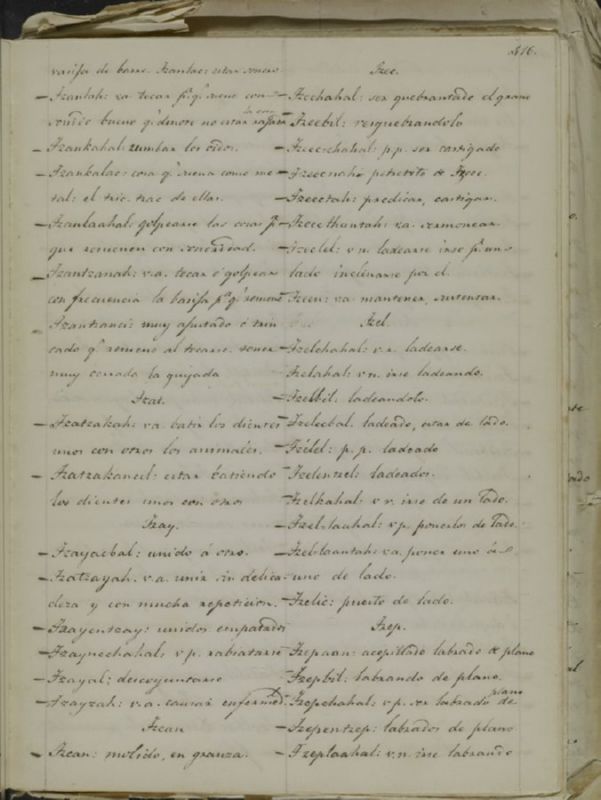 416.
vasija de barro. Tzantac: estar sonoro
— Tzantah: va tocar pª. qᵉ. suene con
sonido bueno qᵉ. denote no estar rajada la cosa
— Tzankahal: zumbar los oidos.
— Tzankalac: cosa qᵉ. suena como me-
tal: el tric trac de ellas.
— Tzanlaahal: golpearse las cosas pª.
que resuenen con sonoridad.
— Tzantzanah: v.a. tocar ó golpear
con frecuencia la basija pª. qᵉ. resuene
— Tzantzanci: muy ajustado ó trin
cado qᵉ. resuene al tocarse. tener
muy cerrada la quijada
Tzat.
— Tzatzakah: va. batir los dientes
unos con otros los animales.
— Tzatzakancil: estar batiendo
los dientes unos con otros
Tzay.
— Tzayacbal: unido á otro.
— Tzatzayah. v.a. unir sin delica-
deza y con mucha repeticion.
— Tzayentzay: unidos emparados
— Tzaynechahal: v.p. rabiatarse
— Tzayal: descoyuntarse
— Tzayzah: v.a. causar enfermed.
Tzcan
— Tzcan: molido, en granza.
Tzec.
— Tzechahal: ser quebrantado el grano
— Tzecbil: resquebrandolo
— Tzecchahal: p.p. ser castigado
— Tzecnahi preterito de Tzec
— Tzectah: predicar, castigar.
— Tzecthantah: va. sermonear
— Tzelel: v.n. ladearse irse pʳ. un
lado inclinarse por el.
Tzen: va mantener, sustentar.
Tzel
— Tzelchahal: v.n. ladearse.
Tzelahal: v.n. irse ladeando.
— Tzelbil: ladeandolo.
— Tzelecbal: ladeado, estar de lado.
— Tzeld: p.p. ladeado
— Tzelentzel: ladeados.
— Tzelkahal: v.n. irse de un lado.
— Tzelilaahal: v.p. ponerlos de lado.
— Tzelilaantah: va. poner uno á
uno de lado.
— Tzelic: puesto de lado.
Tzep.
— Tzepaan: acepillado labrado de plano
— Tzepbil: labrando de plano.
— Tzepchahal: v.p. ser labrado de plano
— Tzepentzep: labrados de plano
— Tzeplaahal: v.n. irse labrando